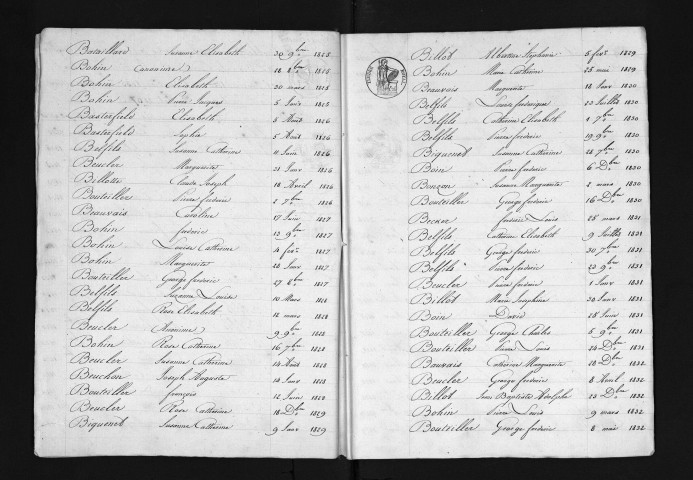 Bataillard Susanne Elisabeth 30 9bre 1825
Bohin 18 8bre 1825
Bohin Elisabeth 20 mars 1825
Bohin Pierre Jacques 5 Janv 1825
Basterfield Elisabeth 5 Août 1826
Basterfield Sophie 5 Août 1826
Belfils Susanne Catherine 11 Juin 1826
Beucler Marguerite 21 Janv 1826
Billotte Claude Joseph 18 Avril 1826
Bouteiller Pierre frédéric 2 7bre 1826
Beauvais Caroline 17 Juin 1827
Bohin frédéric 12 9bre 1827
Bohin Louise Catherine 4 févr 1827
Bohin Marguerite 26 Janv 1827
Bouteiller George frédéric 27 8bre 1827
Belfils Suzanne Louise 10 Mars 1828
Belfils Rose Elisabeth 12 mars 1828
Beucler 9 9bre 1828
Bohin Rose Catherine 16 7bre 1828
Beucler Susanne Catherine 14 Août 1828
Beuchon Joseph Auguste 14 Janv 1828
Bouteiller françois 12 Juin 1828
Beucler Rose Catherine 18 Dbre 1829
Biquenet Susanne Catherine 9 Janv 1829
Billot Albertine Stéphanie 5 févr 1829
Bohin Marie Catherine 25 mai 1829
Beauvais Marguerite 18 Janv 1830
Belfils Louise frédérique 23 Juillet 1830
Belfils Catherine Elisabeth 1 7bre 1830
Belfils Pierre frédéric 19 9bre 1830
Biquenet Susanne Catherine 28 7bre 1830
Boin Pierre frédéric 6 Dbre 1830
Bonzon Susanne Marguerite 2 mars 1830
Bouteiller George frédéric 16 Dbre 1830
Becker frédéric Louis 25 mars 1831
Belfils Catherine Elisabeth 9 Juillet 1831
Belfils George frédéric 30 7bre 1831
Belfils Pierre frédéric 20 9bre 1831
Beucler Pierre frédéric 1 Janv 1831
Billot Marie Joséphine 30 Janv 1831
Boin David 28 Juin 1831
Bouteiller George Charles 5 9bre 1831
Bouteiller Pierre Louis 24 Dbre 1831
Bauvais Catherine Marguerite 28 Dbre 1832
Beucler George frédéric 8 Avril 1832
Billot Jean Baptiste Adolphe 23 Dbre 1832
Bohin Pierre Louis 9 mars 1832
Bouteiller George frédéric 8 mai 1832